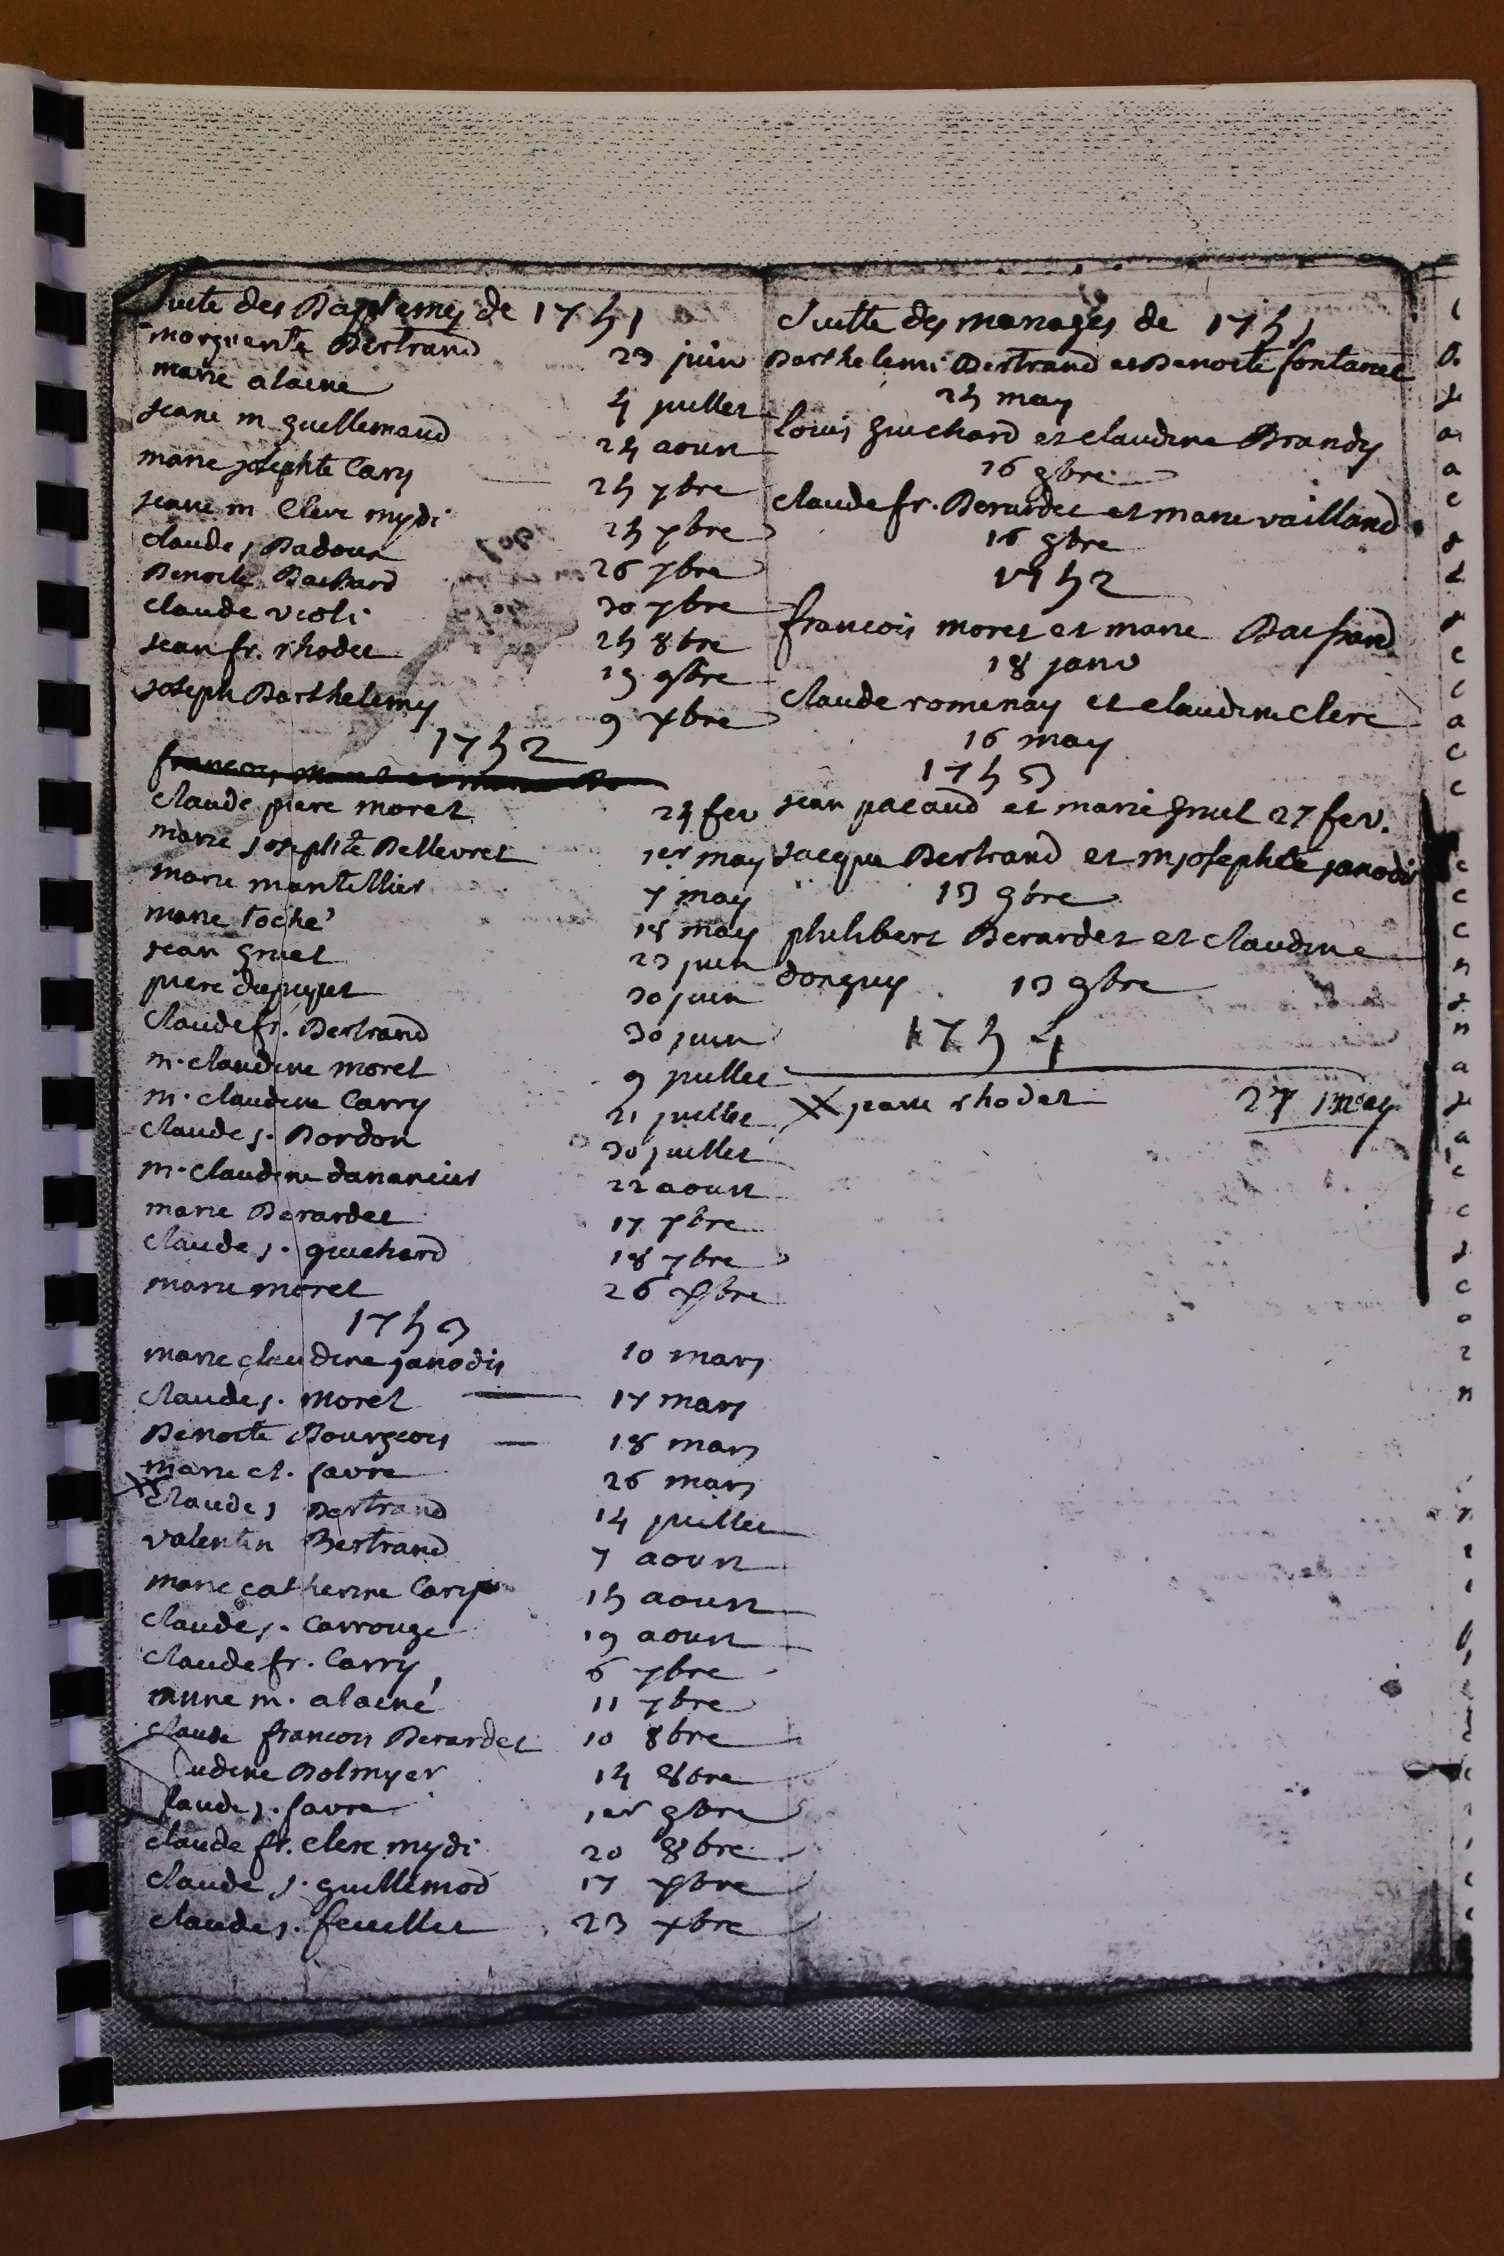 Suite des Baptemes de 1751
marguerite Bertrand 23 juin
marie alaine 4 juillet
jeane m guillemaud 24 aoust
marie josephte Cary 25 7bre
jeane m Clerc mydi 25 7bre
claude j Badoux 26 7bre
Benoite Bachard 30 7bre
claude violi 25 8bre
jean fr. rhodet 19 9bre
joseph Barthelemy 9 xbre
1752
francois moret et marie
claude piere moret 24 fev
marie josephte Bellevret 1er may
marie mantellier 7 may
marie toché 18 may
jean gruel 23 juin
piere dupuget 30 juin
claude fr. Bertrand 30 juin
m. claudine moret 9 juillet
m. claudine Carry 21 juillet
claude j. Bordon 30 juillet
m. claudine danancier 22 aoust
marie Berardet 17 7bre
claude j. guichard 18 7bre
marie moret 26 xbre
1753
marie claudine janodis 10 mars
claude j. moret 17 mars
Benoite Bourgeois 18 mars
marie cl. favre 26 mars
claude j Bertrand 14 juillet
valentin Bertrand 7 aoust
marie catherine Cary 15 aoust
claude j. Carrouge 19 aoust
claude fr. Carry 6 7bre
m. alaené 11 7bre
claude francois Berardet 10 8bre
udine Bolmyer 14 8bre
laude j. favre 1er 9bre
claude fr. clerc mydi 20 8bre
claude j. guillemod 17 xbre
claude j. feuillet 23 xbre
Suitte des mariages de 1751
Barthelemi Bertrand et Benoite fontanet
25 may
louis guichard et claudine Brandy
16 9bre
claude fr. Berardet et marie vailland
16 9bre
1752
francois moret et marie Bassand
18 janv
claude romenay et claudine clerc
16 may
1753
jean pacaud et marie gruel 27 fev.
jacque Bertrand et m josephte janodis
13 9bre
philibert Berardet et claudine
donguy 13 9bre
1754
jeane rhodet 27 may